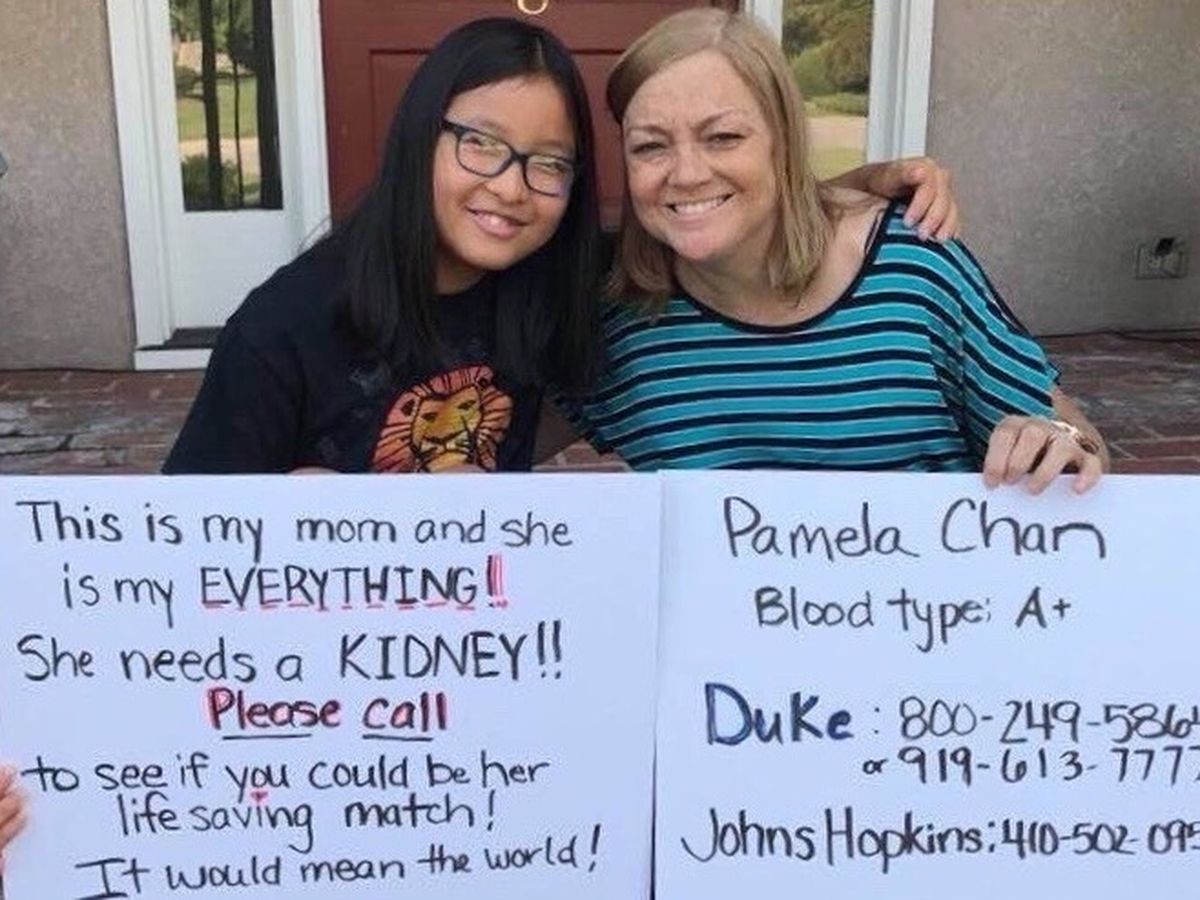 This is my mom and she
is my EVERYTHING!
She needs a KIDNEY!!
Please call
to see if you could be her
life saving match!
It would mean the world!
Pamela Chan
Blood type: A+
Duke: 800-249-586
or 919-613-7777
Johns Hopkins: 410-502-095